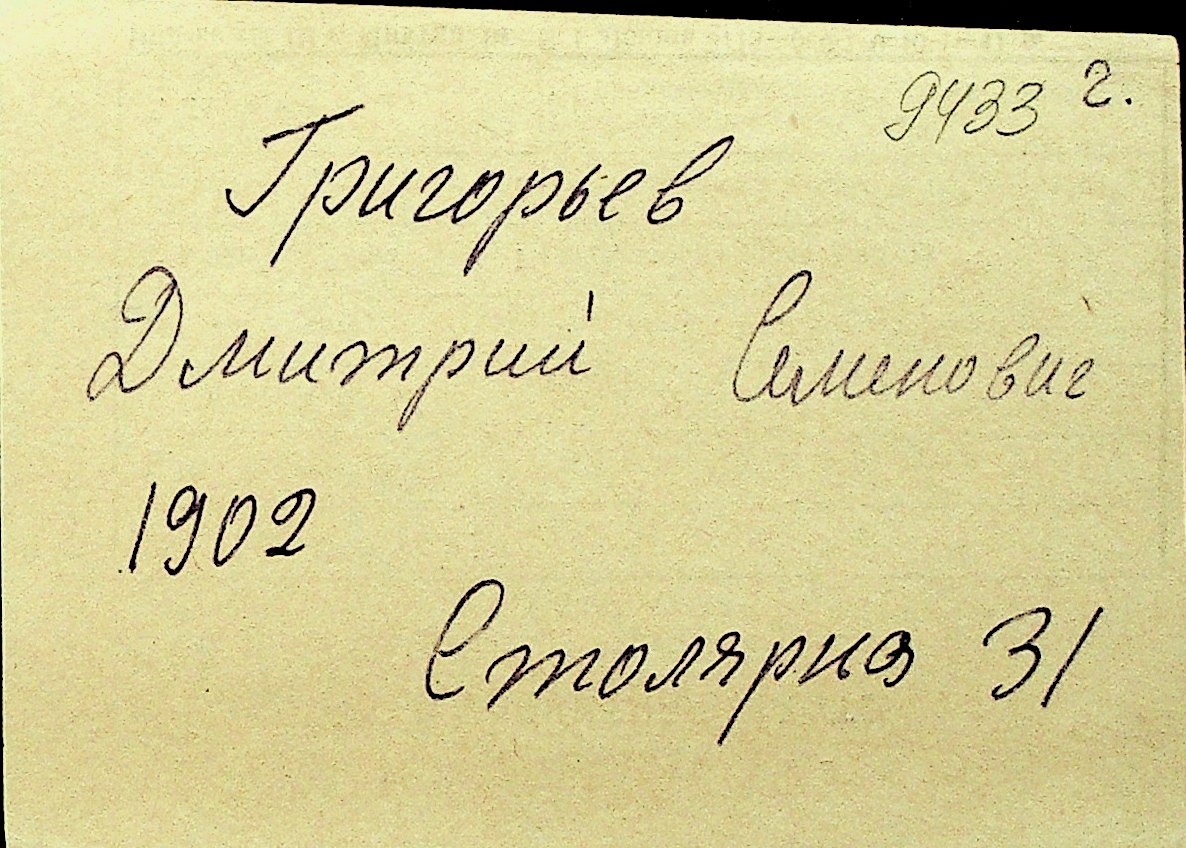 9433 г.
Григорьев
Дмитрий Семенович
1902
Столярная 31